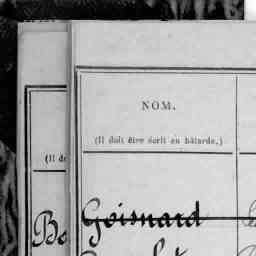 NOM.
(Il doit être écrit en bâtarde.)
(Il d
Bo
Goismard